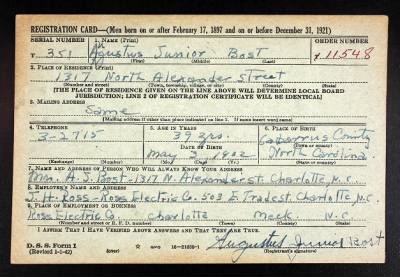 REGISTRATION CARD—(Men born on or after February 17, 1897 and on or before December 31, 1921)
SERIAL NUMBER 1. NAME (Print) ORDER NUMBER
T 351 Agustus Junior Bost T 11548
(First) (Middle) (Last)
2. PLACE OF RESIDENCE (Print)
1317 North Alexander Street
(Number and street) (Town, township, village, or city) (County) (State)
[THE PLACE OF RESIDENCE GIVEN ON THE LINE ABOVE WILL DETERMINE LOCAL BOARD
JURISDICTION; LINE 2 OF REGISTRATION CERTIFICATE WILL BE IDENTICAL]
3. MAILING ADDRESS
Same
[Mailing address if other than place indicated on line 2. If same insert word same]
4. TELEPHONE 5. AGE IN YEARS 6. PLACE OF BIRTH
3-2715 39 yrs. Cabarrus County
DATE OF BIRTH (Town or county)
May 3 1902 North Carolina
(Exchange) (Number) (Mo.) (Day) (Yr.) (State or country)
7. NAME AND ADDRESS OF PERSON WHO WILL ALWAYS KNOW YOUR ADDRESS
Mrs. A. J. Bost-1317 N. Alexander st. Charlotte, N.C.
8. EMPLOYER'S NAME AND ADDRESS
J. H. Ross-Ross Electric Co. 503 E. Trade st. Charlotte, N.C.
9. PLACE OF EMPLOYMENT OR BUSINESS
Ross Electric Co. Charlotte Meck. N.C.
(Number and street or R. F. D. number) (Town) (County) (State)
I AFFIRM THAT I HAVE VERIFIED ABOVE ANSWERS AND THAT THEY ARE TRUE.
D. S. S. Form 1
(Revised 1-1-42) (over) 16-21630-1 Augustus Junior Bost